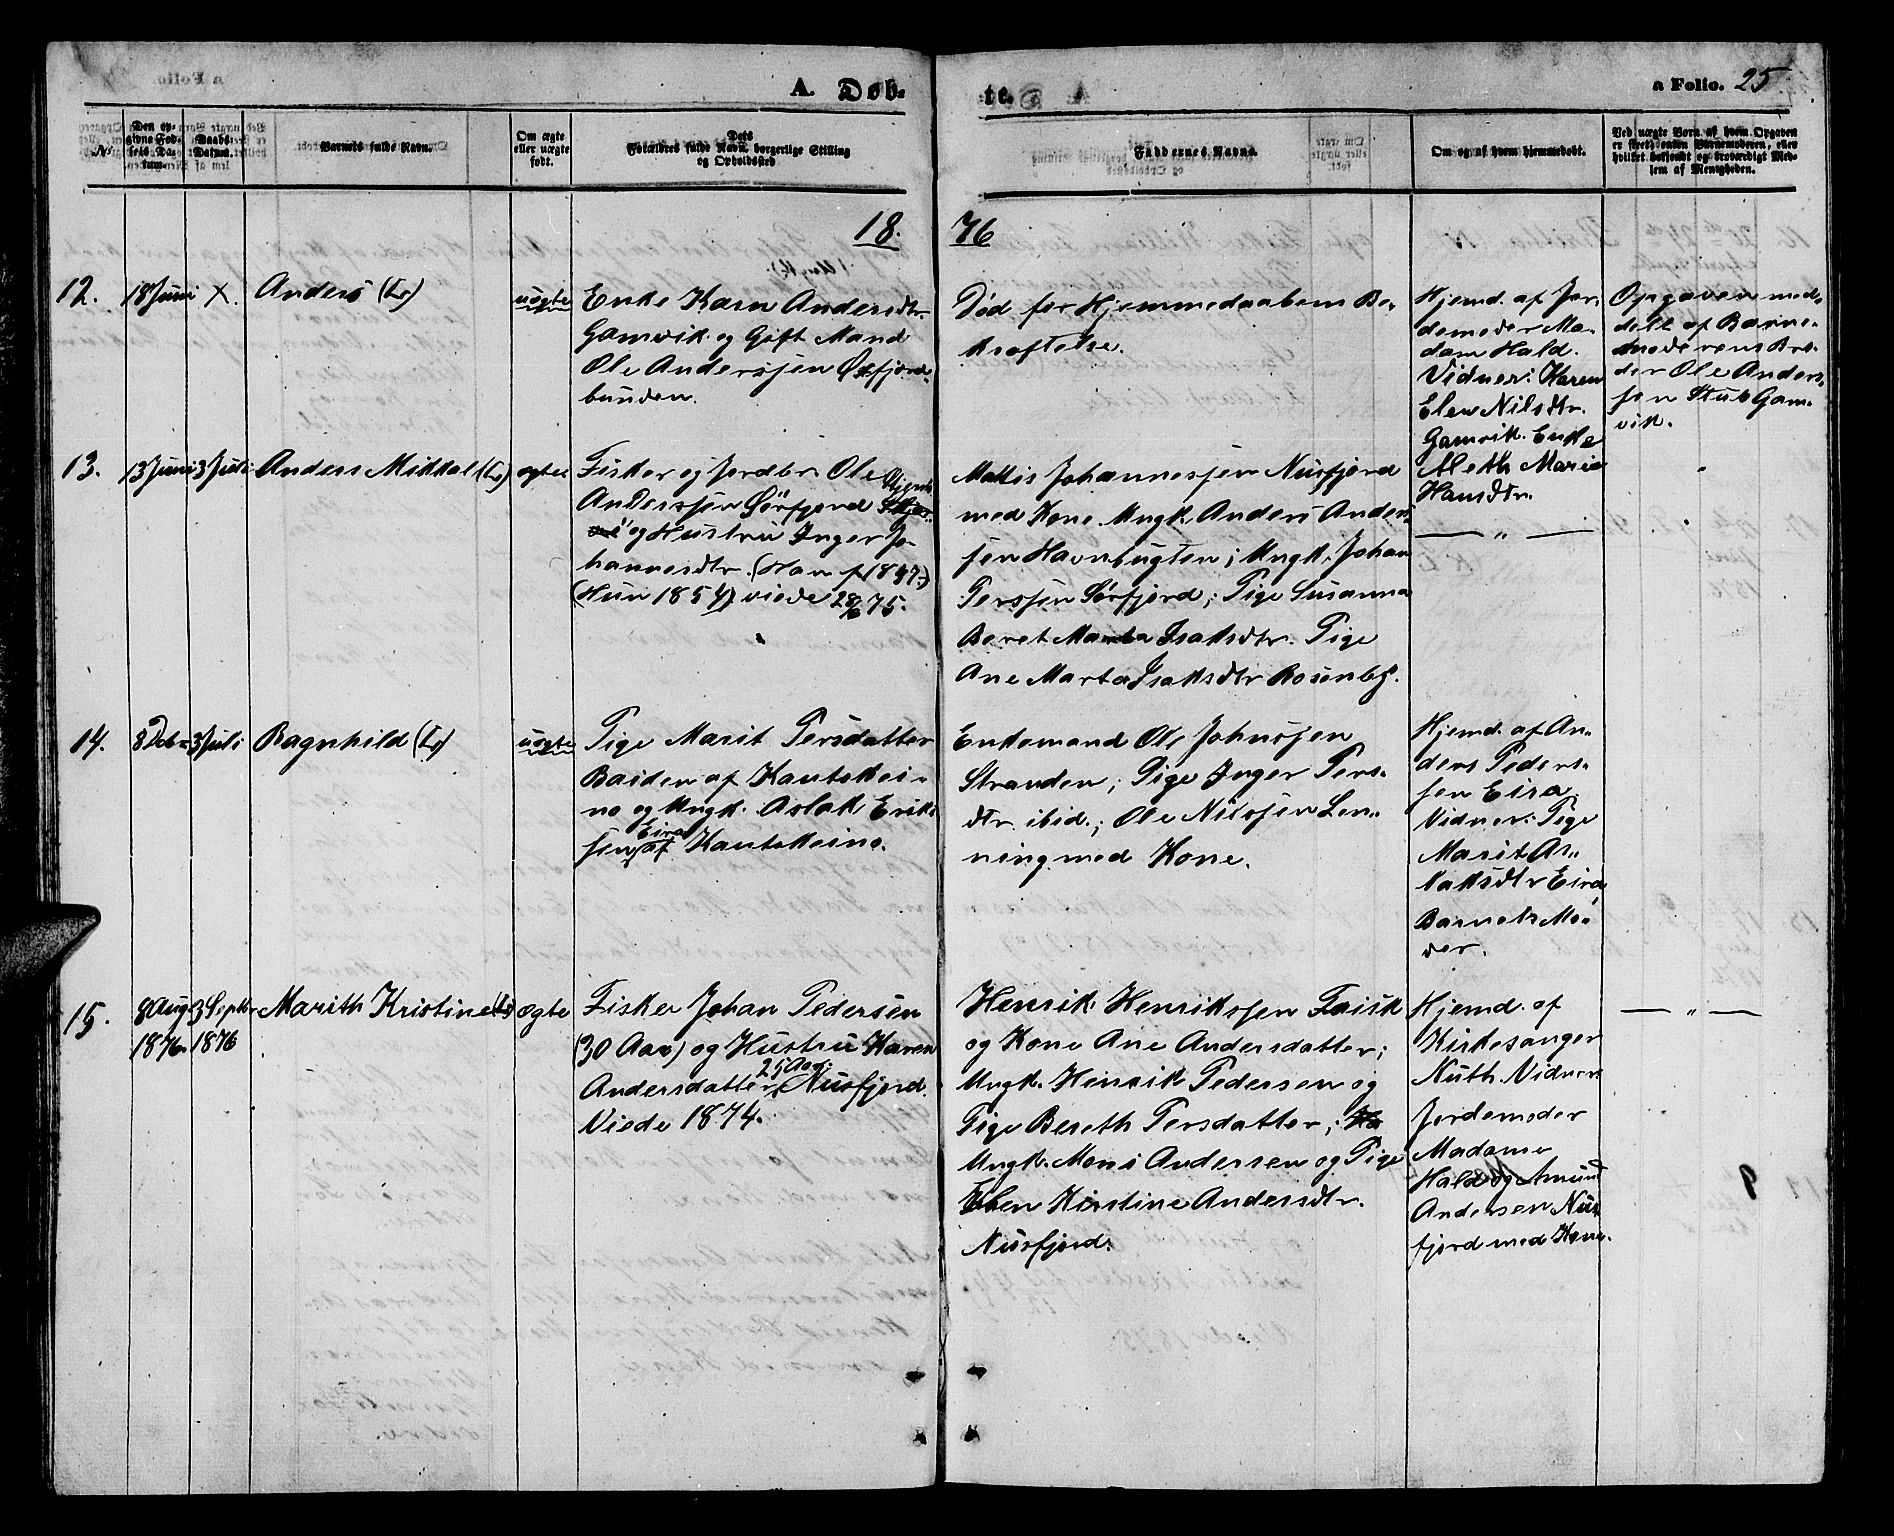 A. Døb-
te.
a Folio. 25
No
Den opgivne Fødsels Datum.
Daabs Datum.
Barnets fulde Navn.
Om ægte eller uægte født.
Dets Forældres fulde Navn, borgerlige Stilling og Opholdssted
Faddernes Navne.
Om og af hvem hjemmedøbt.
Ved uægte Børn af hvem Opgaven er skeet: enten Barnemoderen, eller hvilket bosiddende og troværdigt Medlem af Menigheden.
18. 76
12. 18 Juni X. Anders (L.) uægte
(Ungk.)
Enke Karn Andersdtr.
Gamvik og Gift Mand
Ole Andersjen Øxfjord-
bunden.
Død før Hjemmedaabens Be-
kræftelse.
Hjemd. af Jor-
demoder Ma-
dam Hald.
Vidner: Karen
Elen Nilsdtr.
Gamvik. Enke
Aleth Marie
Hansdtr.
Opgaven med-
delt af Barne-
moderens Bro-
der Ole Anders-
sen Stub Gam-
vik.
13. 13 Juni 3 Juli Anders Mikkal (L.) ægte
Fisker og Jordbr. Ole
Anderssen Sørfjord
og Hustru Inger Jo-
hannesdtr. (Han f. 1847.)
(Hun 1854) viede 28/6 75.
Mattis Johannesjen Nusfjord
med Kone Ungk. Anders Anders-
sen Havnbugten; Ungk. Johan
Perssen Sørfjord; Pige Susanna
Beret Marta Isaksdtr. Pige
Ane Marta Isaksdtr Rosenbg.
— " —
14. 8 Deb. 3 Juli Ragnhild (L.) uægte
Pige Marit Persdatter
Baiden af Kautokei-
no og Ungk. Aslak Eriks-
sen Eira af Kautokeino.
Enkemand Ole Johnsjen
Stranden; Pige Inger Pers-
dtr. ibid.; Ole Nilssen Len-
ning med Kone.
Hjemd. af An-
ders Peders-
sen Eira
Vidner: Pige
Marit As-
laksdtr Eira,
Barnets Mo-
der.
15. 8 Aug. 1876 3 Septbr 1876 Marith Kristine (L.) ægte
Fisker Johan Pedersen
(30 Aar) og Hustru Karen
Andersdatter, 25 Aar. Nusfjord.
Viede 1874.
Henrik Henrikssen Faisk
og Kone Ane Andersdatter;
Ungk. Henrik Pedersen og
Pige Bereth Persdatter;
Ungk. Mons Andersen og Pige
Elen Kirstine Andersdtr.
Nusfjord.
Hjemd. af
Kirkesanger
Nuth. Vidner
Jordemoder
Madame
Hald og Amund
Andersen Nus-
fjord med Kone.
— " —